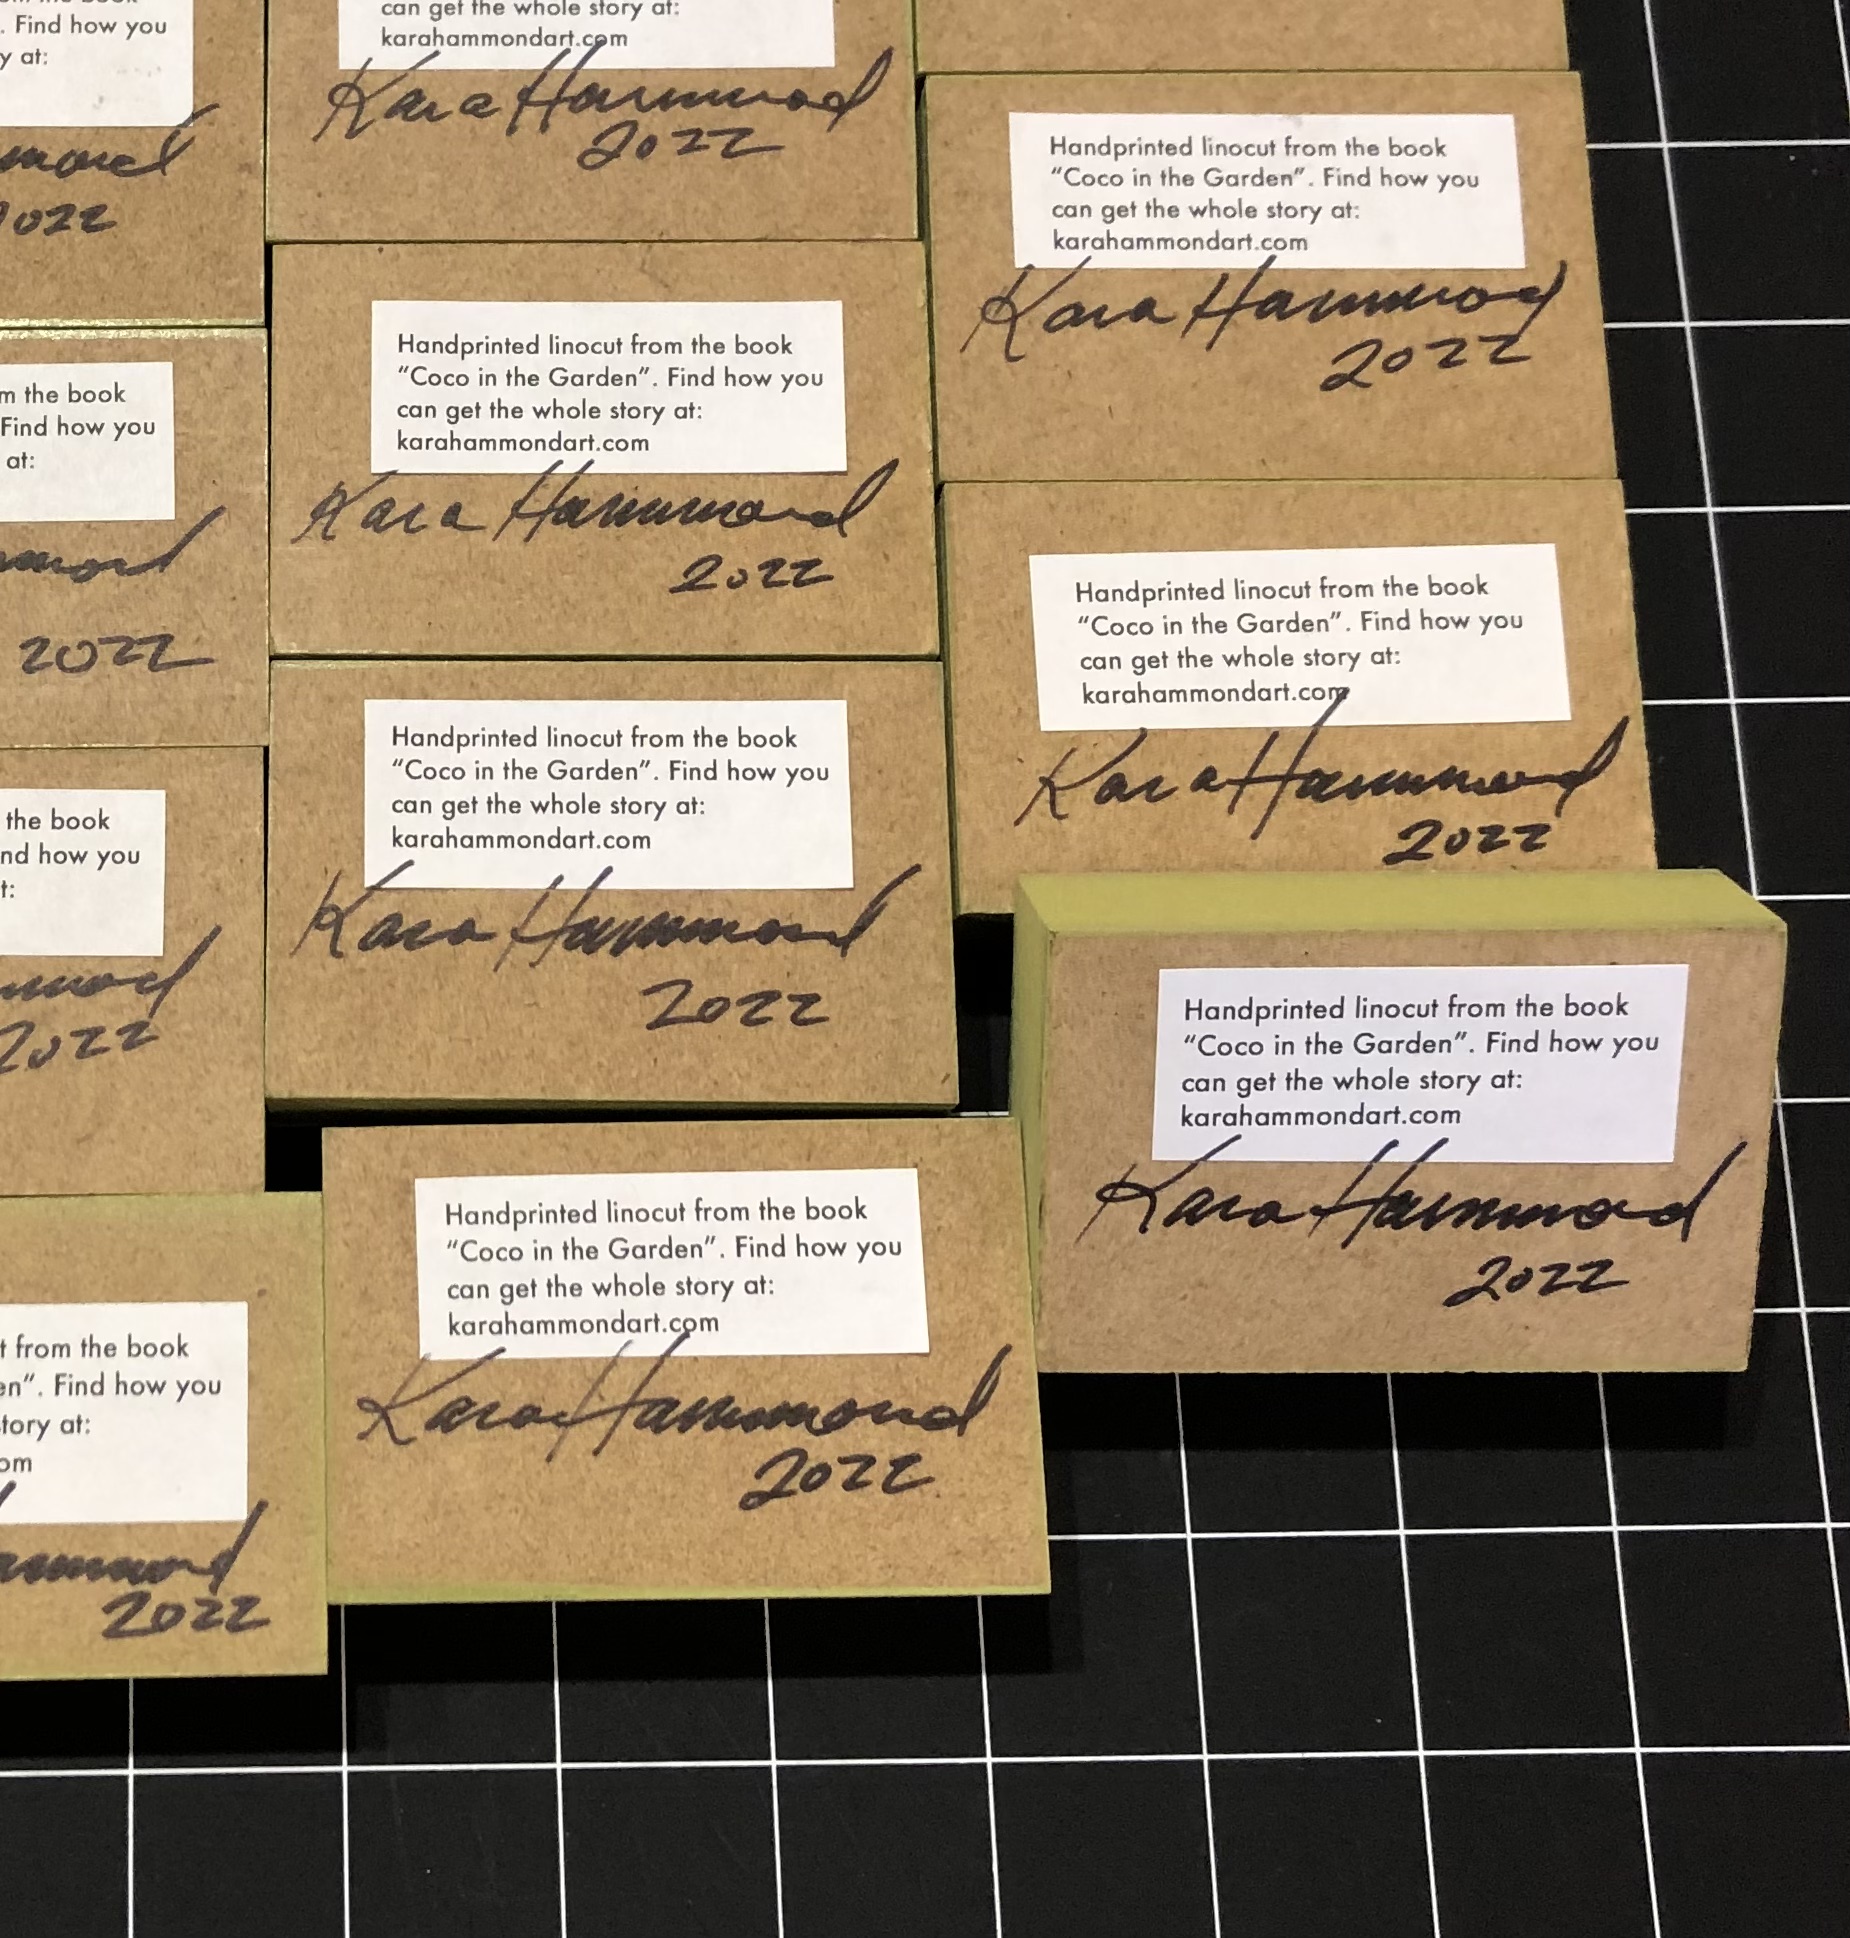 . Find how you
y at:
mmond
2022
m the book
Find how you
at:
mmond
2022
the book
nd how you
t:
mmond
2022
t from the book
en”. Find how you
tory at:
om
ammond
2022
can get the whole story at:
karahammondart.com
Kara Hammond
2022
Handprinted linocut from the book
“Coco in the Garden”. Find how you
can get the whole story at:
karahammondart.com
Kara Hammond
2022
Handprinted linocut from the book
“Coco in the Garden”. Find how you
can get the whole story at:
karahammondart.com
Kara Hammond
2022
Handprinted linocut from the book
“Coco in the Garden”. Find how you
can get the whole story at:
karahammondart.com
Kara Hammond
2022
Handprinted linocut from the book
“Coco in the Garden”. Find how you
can get the whole story at:
karahammondart.com
Kara Hammond
2022
Handprinted linocut from the book
“Coco in the Garden”. Find how you
can get the whole story at:
karahammondart.com
Kara Hammond
2022
Handprinted linocut from the book
“Coco in the Garden”. Find how you
can get the whole story at:
karahammondart.com
Kara Hammond
2022